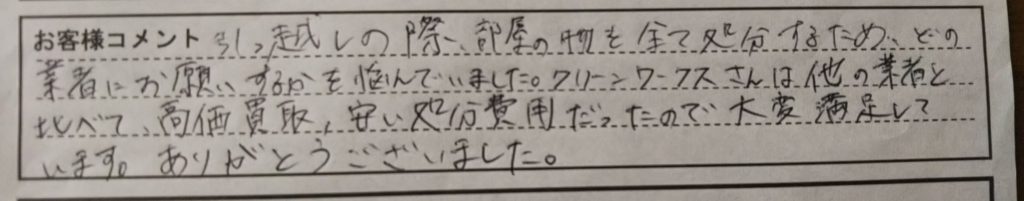 お客様コメント 引っ越しの際、部屋の物を全て処分するため、どの
業者にお願いするかを悩んでいました。クリーンワークスさんは他の業者と
比べて、高価買取、安い処分費用だったので大変満足して
います。ありがとうございました。